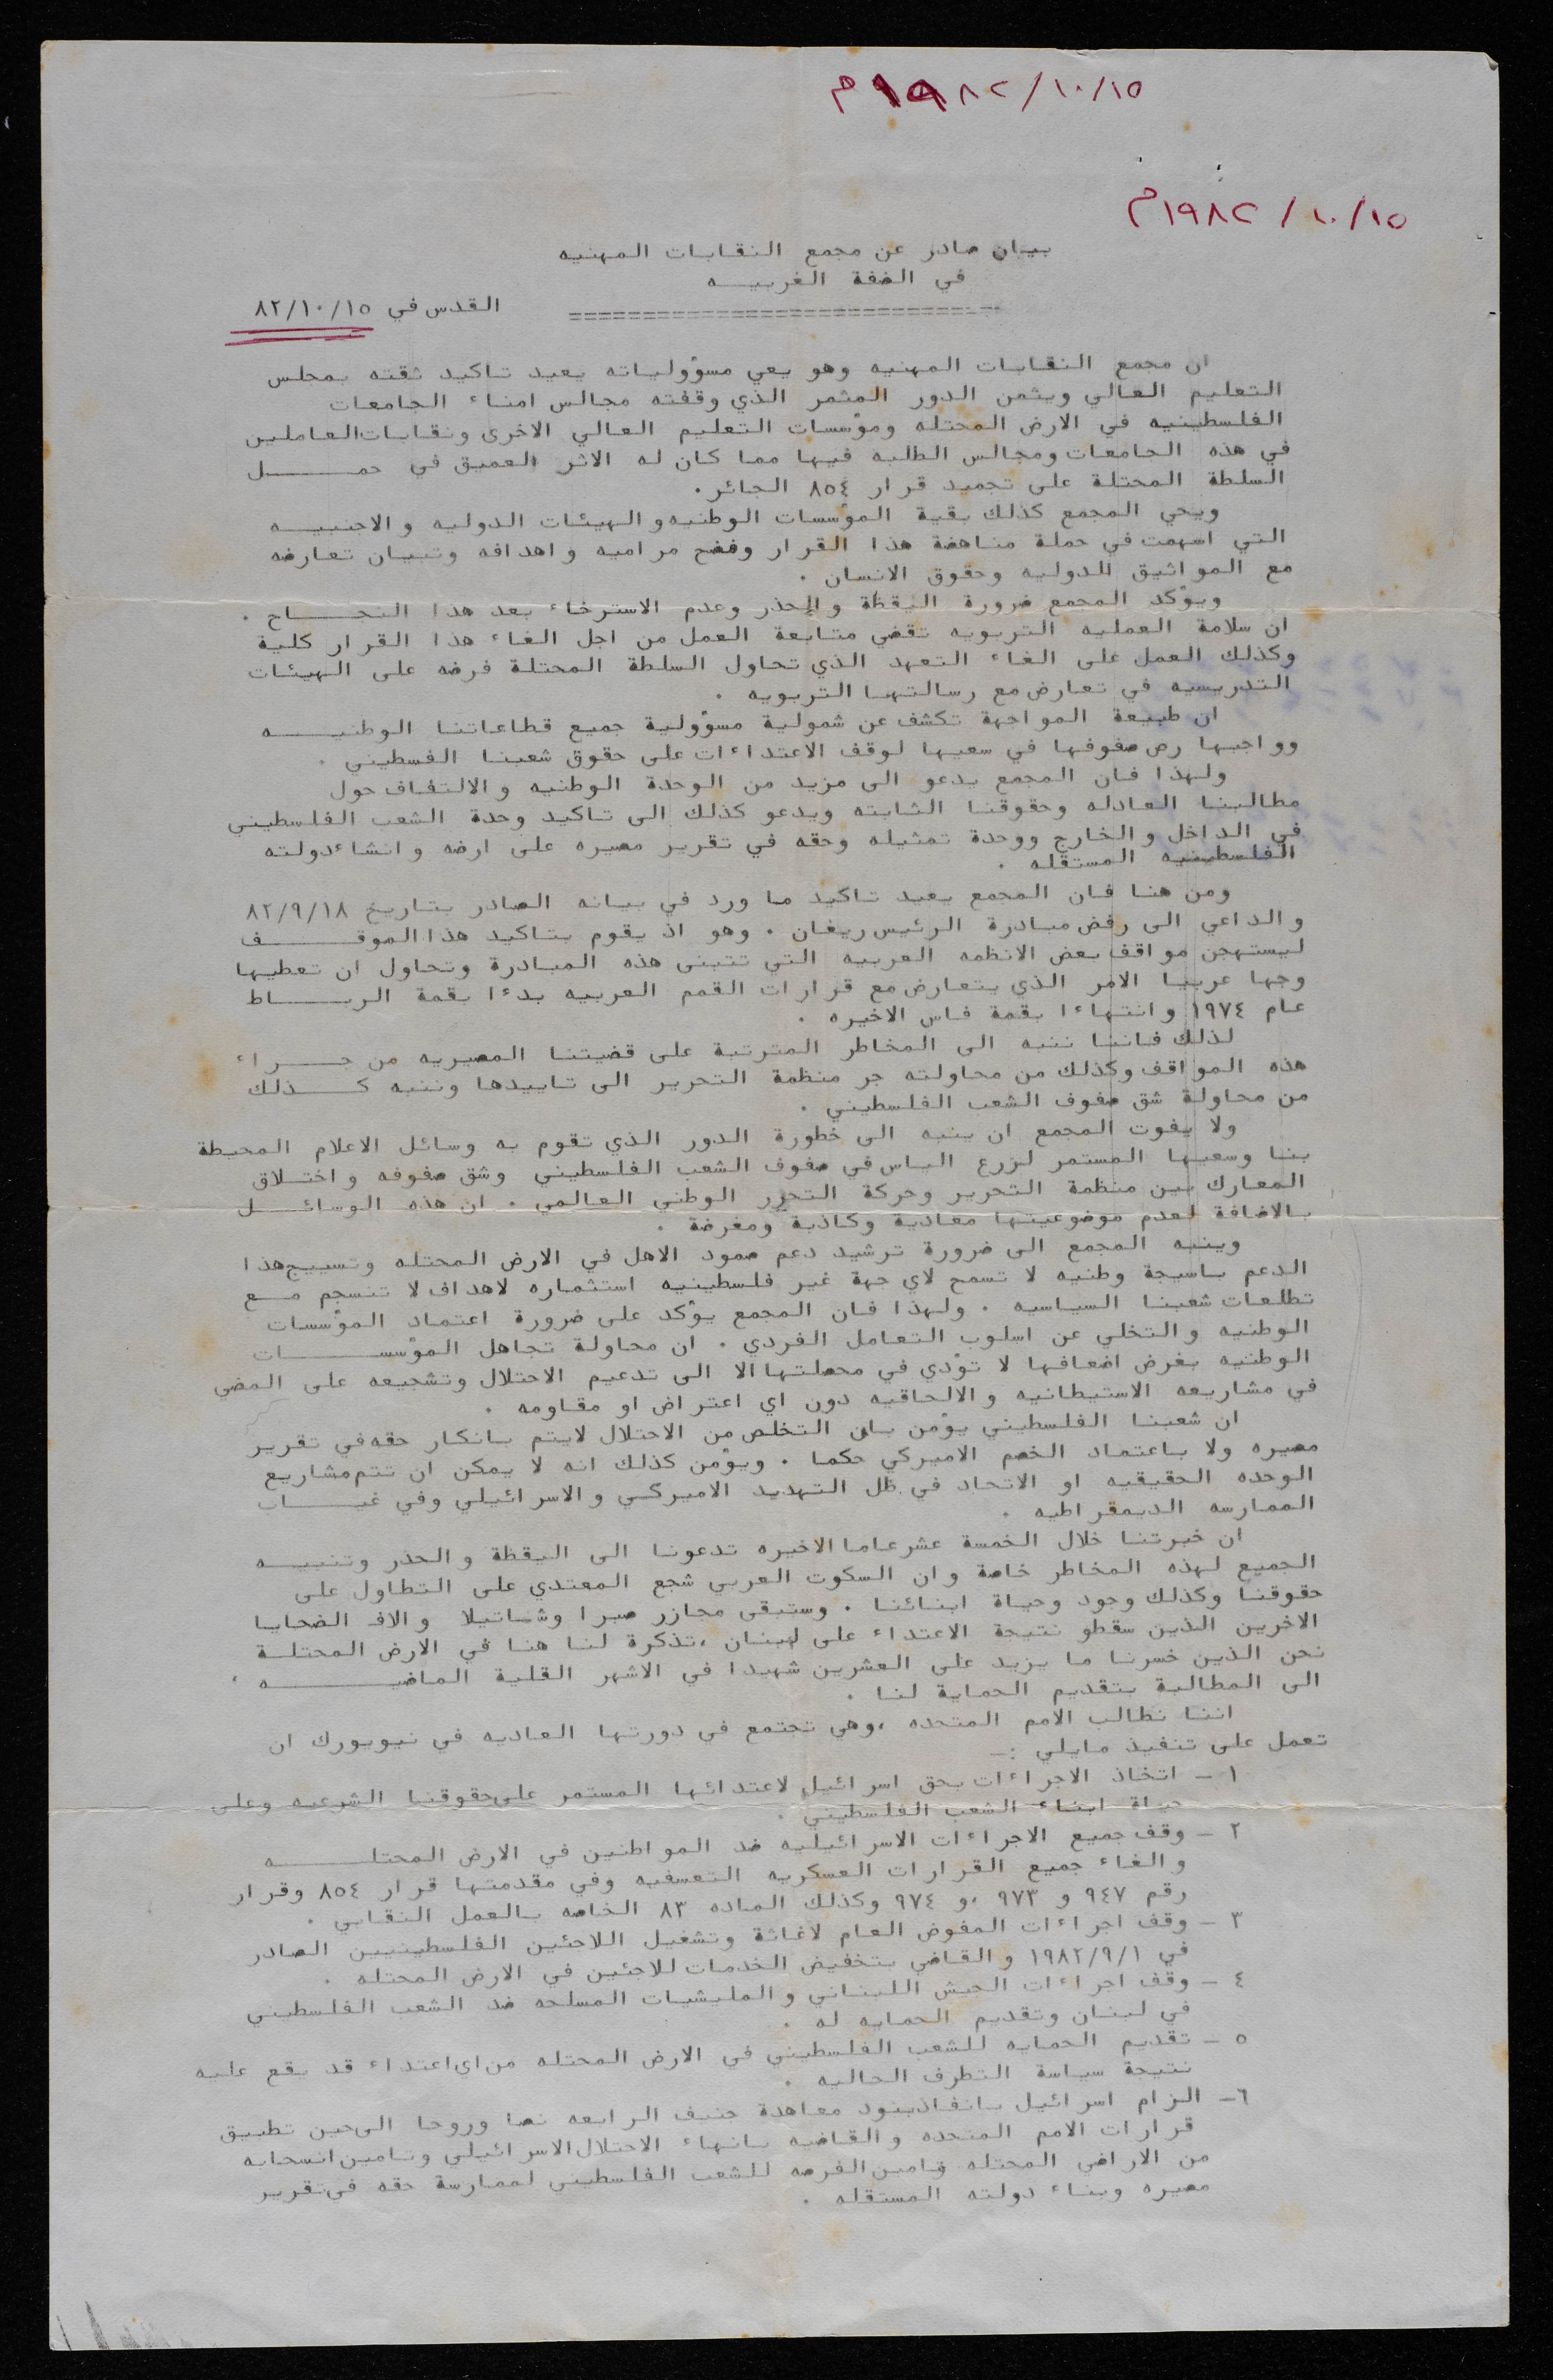 ١٥/١٠/١٩٨٢م
١٥/١٠/١٩٨٢م
بيان صادر عن مجمع النقابات المهنيه
في الضفة الغربيـــه
القدس في ٨٢/١٠/١٥
=============================
ان مجمع النقابات المهنيه وهو يعي مسوؤولياته يعيد تاكيد ثقته بمجلس
التعليم العالي ويثمن الدور المثمر الذي وقفته مجالس امناء الجامعات
الفلسطينيه في الارض المحتله ومؤسسات التعليم العالي الاخرى ونقابات العاملين
في هذه الجامعات ومجالس الطلبه فيها مما كان له الاثر العميق في حمـــــل
السلطة المحتلة على تجميد قرار ٨٥٤ الجائر.
ويحي المجمع كذلك بقية المؤسسات الوطنيه والهيئات الدوليه والاجنبيـــه
التي اسهمت في حملة مناهضة هذا القرار وفضح مراميه واهدافه وتبيان تعارضه
مع المواثيق الدوليه وحقوق الانسان .
ويؤكد المجمع ضرورة اليقظة والحذر وعدم الاسترخاء بعد هذا النجـــاح .
ان سلامة العمليه التربويه تقضي متابعة العمل من اجل الغاء هذا القرار كلية
وكذلك العمل على الغاء التعهد الذي تحاول السلطة المحتلة فرضه على الهيئات
التدريسيه في تعارض مع رسالتها التربويه .
ان طبيعة المواجهة تكشف عن شمولية مسوؤولية جميع قطاعاتنا الوطنيـــه
وواجبها رص صفوفها في سعيها لوقف الاعتداءات على حقوق شعبنا الفسطيني .
ولهذا فان المجمع يدعو الى مزيد من الوحدة الوطنيه والالتفاف حول
مطالبنا العادله وحقوقنا الثابته ويدعو كذلك الى تاكيد وحدة الشعب الفلسطيني
في الداخل والخارج ووحدة تمثيله وحقه في تقرير مصيره على ارضه وانشاء دولته
الفلسطينيه المستقله .
ومن هنا فان المجمع يعيد تاكيد ما ورد في بيانه الصادر بتاريخ ٨٢/٩/١٨
والداعي الى رفض مبادرة الرئيس ريغان . وهو اذ يقوم بتاكيد هذا الموقـــف
ليستهجن مواقف بعض الانظمه العربيه التي تتبنى هذه المبادرة وتحاول ان تعطيها
وجها عربيا الامر الذي يتعارض مع قرارات القمم العربيه بدءا بقمة الربـــاط
عام ١٩٧٤ وانتهاءا بقمة فاس الاخيره .
لذلك فاننا ننبه الى المخاطر المترتبة على قضيتنا المصيريه من جـــراء
هذه المواقف وكذلك من محاولته جر منظمة التحرير الى تاييدها وننبه كـــذلك
من محاولة شق صفوف الشعب الفلسطيني .
ولا يفوت المجمع ان ينبه الى خطورة الدور الذي تقوم به وسائل الاعلام المحيطة
بنا وسعيها المستمر لزرع الياس في صفوف الشعب الفلسطيني وشق صفوفه واختلاق
المعارك بين منظمة التحرير وحركة التحرر الوطني العالمي . ان هذه الوسائـــل
بالاضافة لعدم موضوعيتها معادية وكاذبة ومغرضة .
وينبه المجمع الى ضرورة ترشيد دعم صمود الاهل في الارض المحتله وتسييج هذا
الدعم باسيجة وطنيه لا تسمح لاي جهة غير فلسطينيه استثماره لاهداف لا تنسجم مـــع
تطلعات شعبنا السياسيه . ولهذا فان المجمع يؤكد على ضرورة اعتماد المؤسسات
الوطنيه والتخلي عن اسلوب التعامل الفردي . ان محاولة تجاهل المؤسســـات
الوطنيه بغرض اضعافها لا تؤدي في محصلتها الا الى تدعيم الاحتلال وتشجيعه على المضي
في مشاريعه الاستيطانيه والالحاقيه دون اي اعتراض او مقاومه .
ان شعبنا الفلسطيني يؤمن بان التخلص من الاحتلال لايتم بانكار حقه في تقرير
مصيره ولا باعتماد الخصم الاميركي حكما . ويؤمن كذلك انه لا يمكن ان تتم مشاريع
الوحده الحقيقيه او الاتحاد في ظل التهديد الاميركي والاسرائيلي وفي غيـــاب
الممارسه الديمقراطيه .
ان خبرتنا خلال الخمسة عشر عاما الاخيره تدعونا الى اليقظة والحذر وتنبيـــه
الجميع لهذه المخاطر خاصة وان السكوت العربي شجع المعتدي على التطاول على
حقوقنا وكذلك وجود وحياة ابنائنا . وستبقى مجازر صبرا وشاتيلا والاف الضحايا
الاخرين الذين سقطو نتيجة الاعتداء على لبنان ،تذكرة لنا هنا في الارض المحتلـــة
نحن الذين خسرنا ما يزيد على العشرين شهيدا في الاشهر القلية الماضيـــه ،
الى المطالبة بتقديم الحماية لنا .
اننا نطالب الامم المتحده ،وهي تجتمع في دورتها العاديه في نيويورك ان
تعمل على تنفيذ مايلي :ـ
١ ـ اتخاذ الاجراءات بحق اسرائيل لاعتدائها المستمر على حقوقنا الشرعيه وعلى
حياة ابناء الشعب الفلسطيني .
٢ ـ وقف جميع الاجراءات الاسرائيليه ضد المواطنين في الارض المحتلـــه
والغاء جميع القرارات العسكريه التعسفيه وفي مقدمتها قرار ٨٥٤ وقرار
رقم ٩٤٧ و ٩٧٣ ،و ٩٧٤ وكذلك الماده ٨٣ الخاصه بالعمل النقابي .
٣ ـ وقف اجراءات المفوض العام لاغاثة وتشغيل اللاجئين الفلسطينيين الصادر
في ١٩٨٢/٩/١ والقاضي بتخفيض الخدمات للاجئين في الارض المحتله .
٤ ـ وقف اجراءات الجيش اللبناني والمليشيات المسلحه ضد الشعب الفلسطيني
في لبنان وتقديم الحمايه له .
٥ ـ تقديم الحمايه للشعب الفلسطيني في الارض المحتله من اي اعتداء قد يقع عليه
نتيجة سياسة التطرف الحاليه .
٦ـ الزام اسرائيل بانفاذ بنود معاهدة جنيف الرابعه نصا وروحا الى حين تطبيق
قرارات الامم المتحده والقاضيه بانهاء الاحتلال الاسرائيلي وتامين انسحابه
من الاراضي المحتله وتامين الفرصه للشعب الفلسطيني لممارسة حقه في تقرير
مصيره وبناء دولته المستقله .